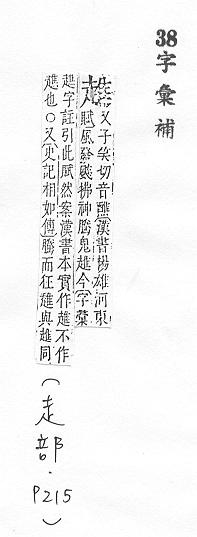 38字彙補
趭
又子笑切音醮漢書楊雄河東
賦風發飇拂神騰鬼趭今字彙
趡字註引此賦然案漢書本實作趭不作
趡也〇又史記相如傳騰而狂趡與趭同
(走部.P215)